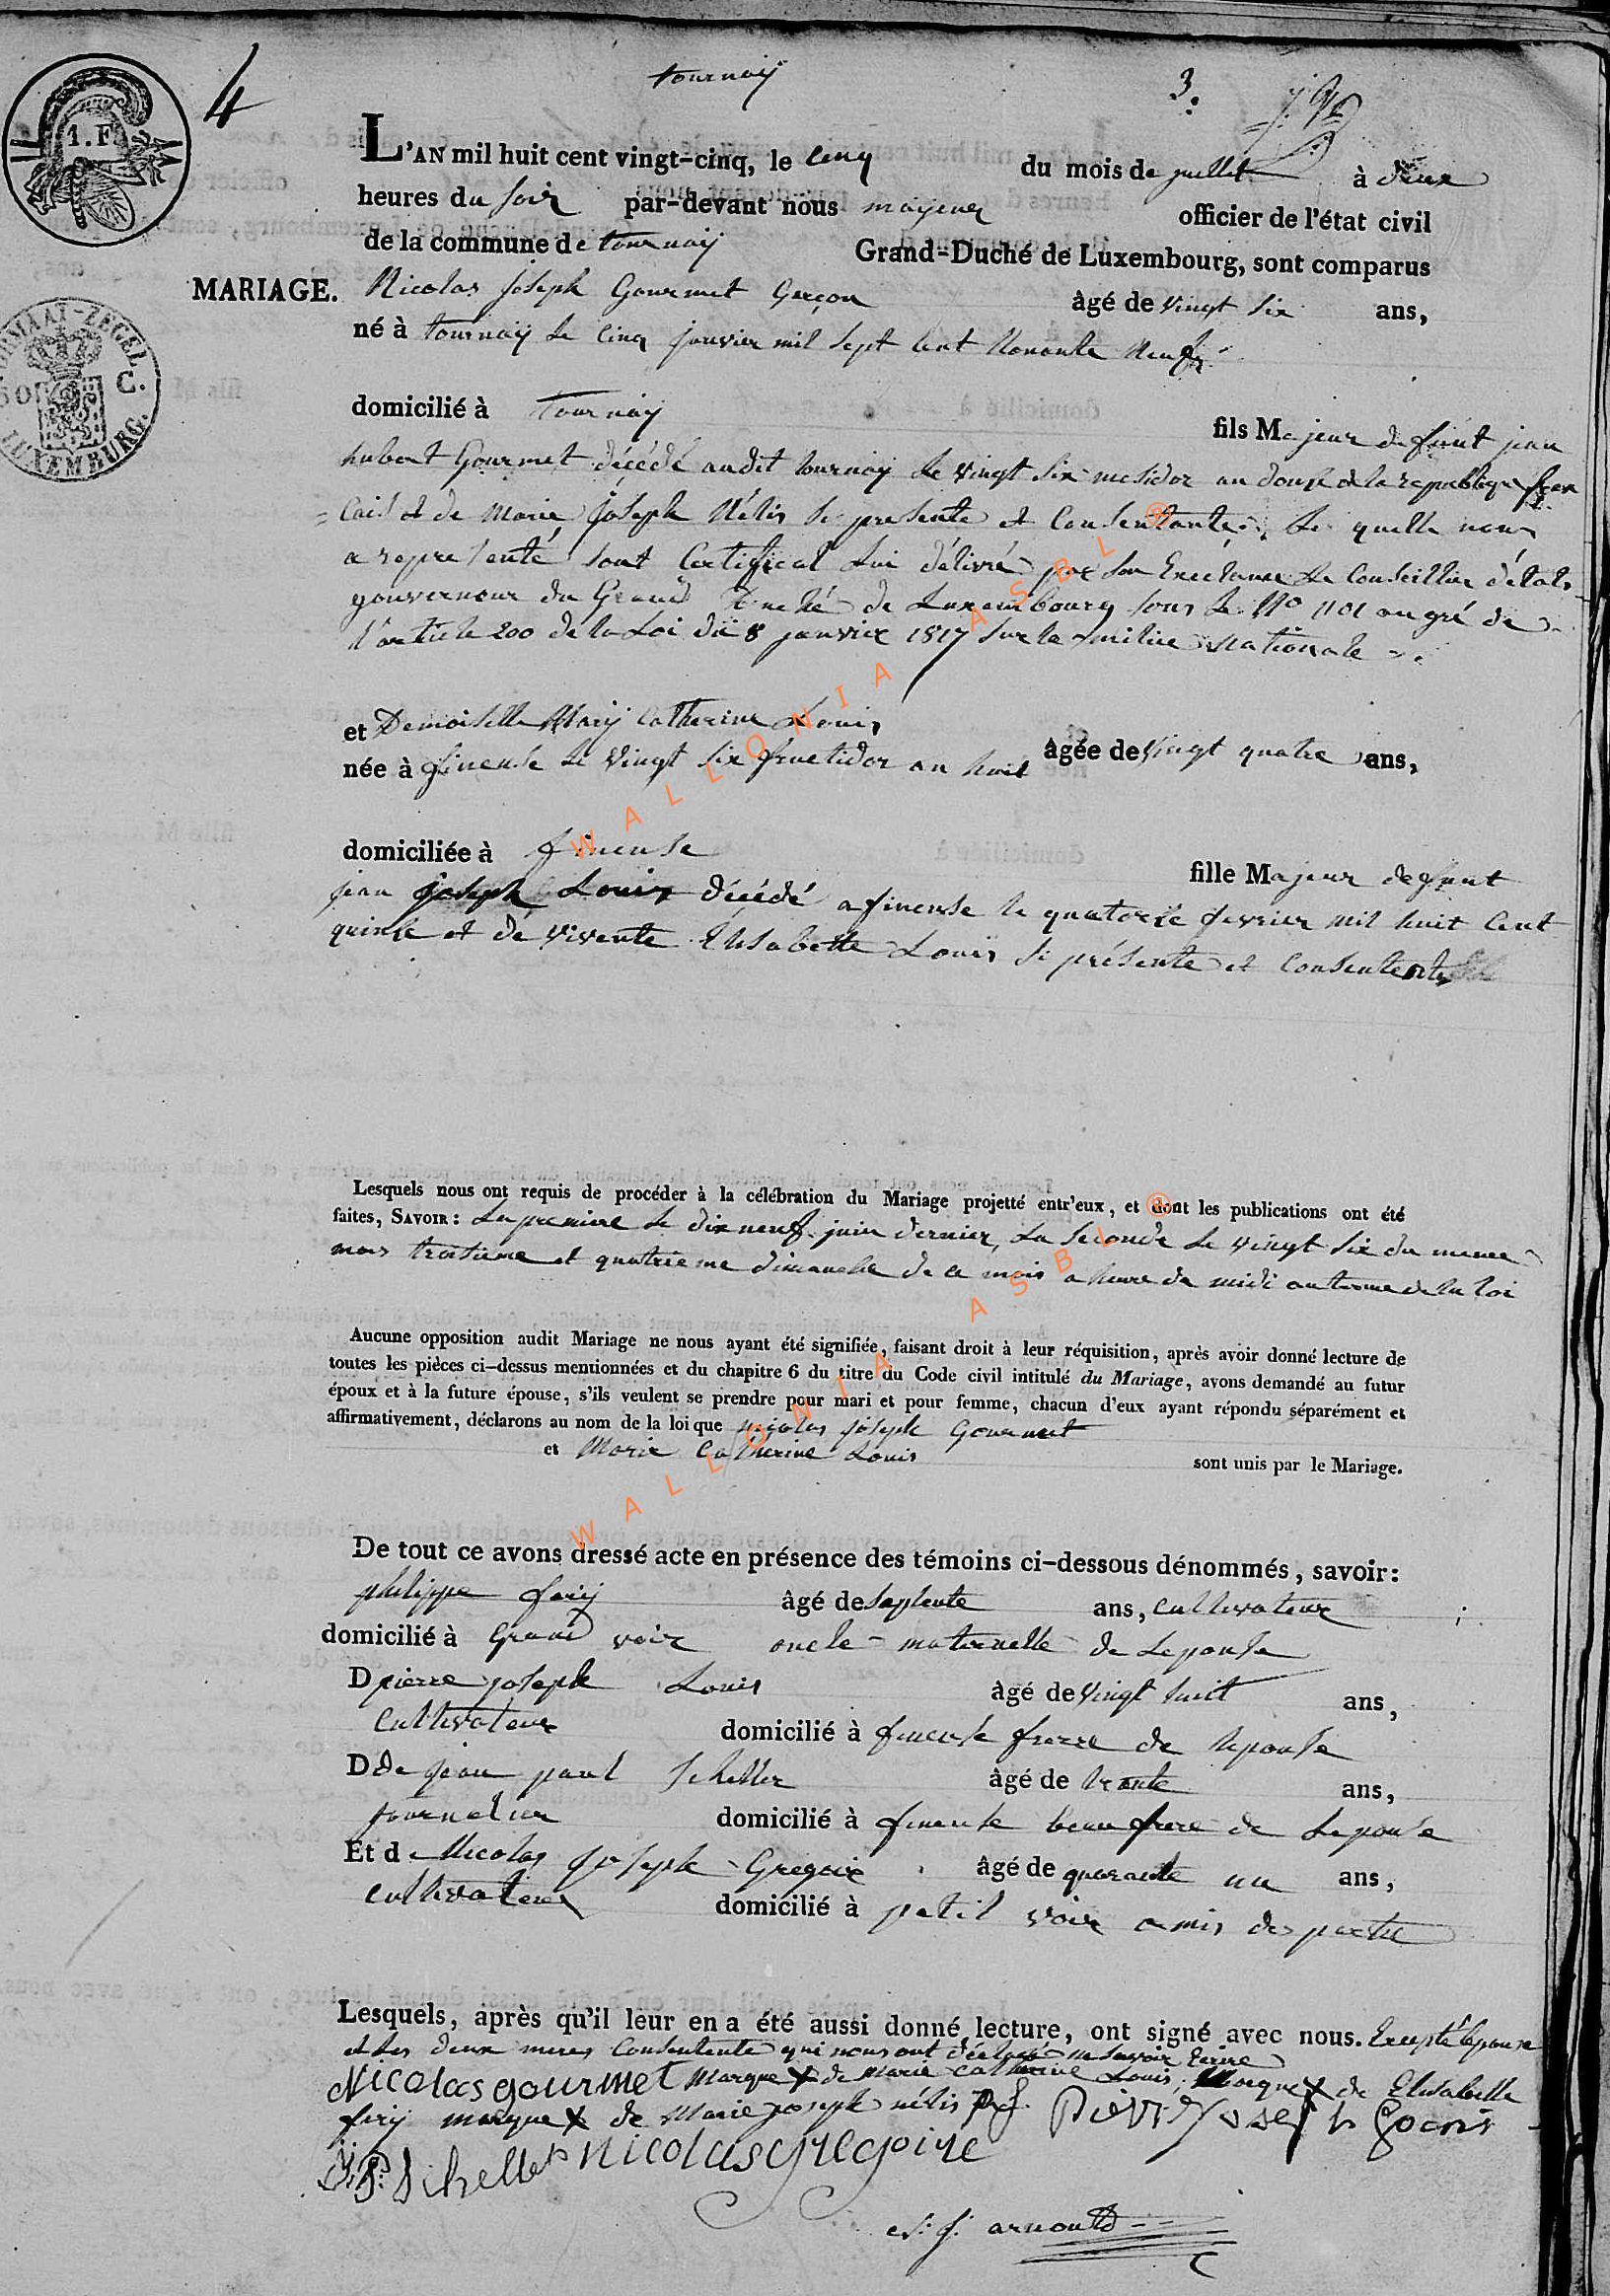 4
tournaÿ
3.
1. F
L'AN mil huit cent vingt-cinq, le cinq du mois de juillet à deux
heures du soir par-devant nous mayeur officier de l'état civil
de la commune de tournaÿ Grand-Duché de Luxembourg, sont comparus
MARIAGE.
Nicolas Joseph Gourmet Garçon âgé de vingt six ans,
né à tournaÿ le cinq janvier mil sept cent Nonante Neuf
ZEGEL
50 C.
LUXEMBURG.
domicilié à tournaÿ fils Majeur de funt jean
hubert Gourmet décédé audit tournaÿ le vingt six mesidor an douse de la republique fran
= cais et de Marie Joseph Nélis si presente et Consentante. la quelle nous
a representé sont Certificat lui délivré par son Excélance le Conseillier d'états
gouverneur du Grand Duché de Luxembourg sous le No 1101 au gré de
l'article 200 de la Loi du 8 janvier 1817 sur la milice Nationale
et Demoiselle Marÿ Catherine Louis
née à fineuse le vingt six fructidor an huit âgée de vingt quatre ans,
domiciliée à fineuse fille Majeur defunt
jean joseph Louis décédé a fineuse le quatorze fevrier mil huit Cent
quinse et de vivente Elisabette Louis si présente et Consentente
Lesquels nous ont requis de procéder à la célébration du Mariage projetté entr'eux, et dont les publications ont été
faites, SAVOIR : La premiere le dix neuf juin dernier, La seconde le vingt six du meme
mois troisieme et quatrieme dimanche de ce mois a heure de midi au terme de la loi
Aucune opposition audit Mariage ne nous ayant été signifiée, faisant droit à leur réquisition, après avoir donné lecture de
toutes les pièces ci-dessus mentionnées et du chapitre 6 du titre du Code civil intitulé du Mariage, avons demandé au futur
époux et à la future épouse, s'ils veulent se prendre pour mari et pour femme, chacun d'eux ayant répondu séparément et
affirmativement, déclarons au nom de la loi que nicolas joseph Gourmet
et Marie Catherine Louis sont unis par le Mariage.
De tout ce avons dressé acte en présence des témoins ci-dessous dénommés, savoir :
philippe firÿ âgé de septente ans, cultivateur
domicilié à Grand voir oncle maternelle de Lepouse
D pierre joseph Louis âgé de vingt huit ans,
Cultivateur domicilié à fineuse frere de lepouse
D de jean paul Scheller âgé de trante ans,
journalier domicilié à fineuse beau frere de Lepouse
Et de Nicolas joseph Gregoire âgé de quarante un ans,
cultivateur domicilié à petit voir amis des partie
Lesquels, après qu'il leur en a été aussi donné lecture, ont signé avec nous. Excepté lepouse
et les deux meres Consentente qui nous ont déclaré ne savoir Ecrire
Nicolas gourmet Marque X de Marie Catherine Louis, Marque X de Elisabette
firÿ marque X de Marie joseph nélis Pierre Joseph Louis
J. P. Scheller nicolas gregoire
arnould
WALLONIA ASBL ®
WALLONIA ASBL ®